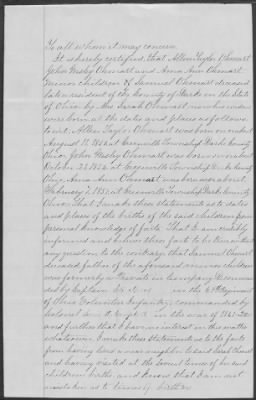 To all whom it may concern
It is hereby certified, that Allen Taylor Ohmart
John Ohmart and Anna Ann Ohmart
minor children of Samuel Ohmart deceased
late resident of the County of Darke in the State
of Ohio by Sarah Ohmart now his widow
were born at the dates and places as follows
to wit: Allen Taylor Ohmart was born on or about
August in Greenville Township Darke County
Ohio. John Ohmart was born on or about
October in Greenville Township Darke County
Ohio. Anna Ann Ohmart was born on or about
February 7. at Greenville Township Darke County
Ohio. That I make these statements as to dates
and places of the births of the said children from
personal knowledge of facts. That I am credibly
informed and believe these facts to be true without
any question to the contrary that Samuel Ohmart
deceased father of the aforesaid minor children
was formerly a Private in Company
ded by Captain in the 69 Regiment
of Ohio Volunteer Infantry commanded by
Colonel in the war of 1861
and further that I have no interest in the matter
whatever. I make these statements as to the facts
from having been a near neighbor to said Sarah Ohmart
and having visited at the several times of her said
children births, and know that I am not
mistaken as to time of births